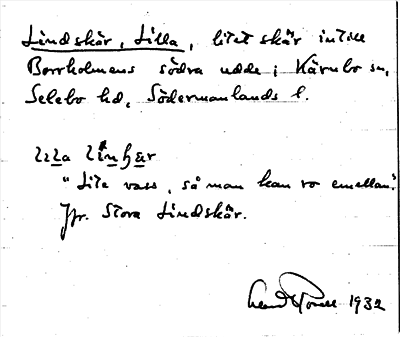 Lindskär, Lilla, litet skär intill
Borrholmens södra udde i Kärnbo sn,
Selebo hd, Södermanlands l.
"Lite vass, så man kan ro emellan."
Jfr. Stora Lindskär.
1932